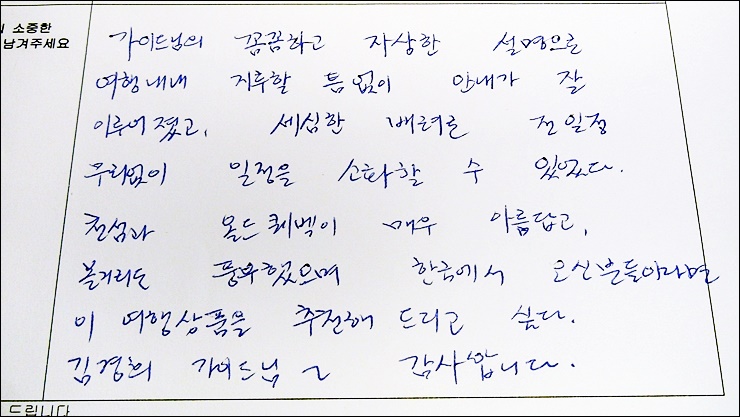 소중한
남겨주세요
가이드님의 꼼꼼하고 자상한 설명으로
여행내내 지루할 틈없이 안내가 잘
이루어졌고, 세심한 배려로 전일정
무리없이 일정을 소화할 수 있었다.
천섬과 올드퀘벡이 매우 아름답고,
볼거리도 풍부했으며 한국에서 오신분들이라면
이 여행상품을 추천해 드리고 싶다.
김경희 가이드님 ~ 감사합니다.
드립니다